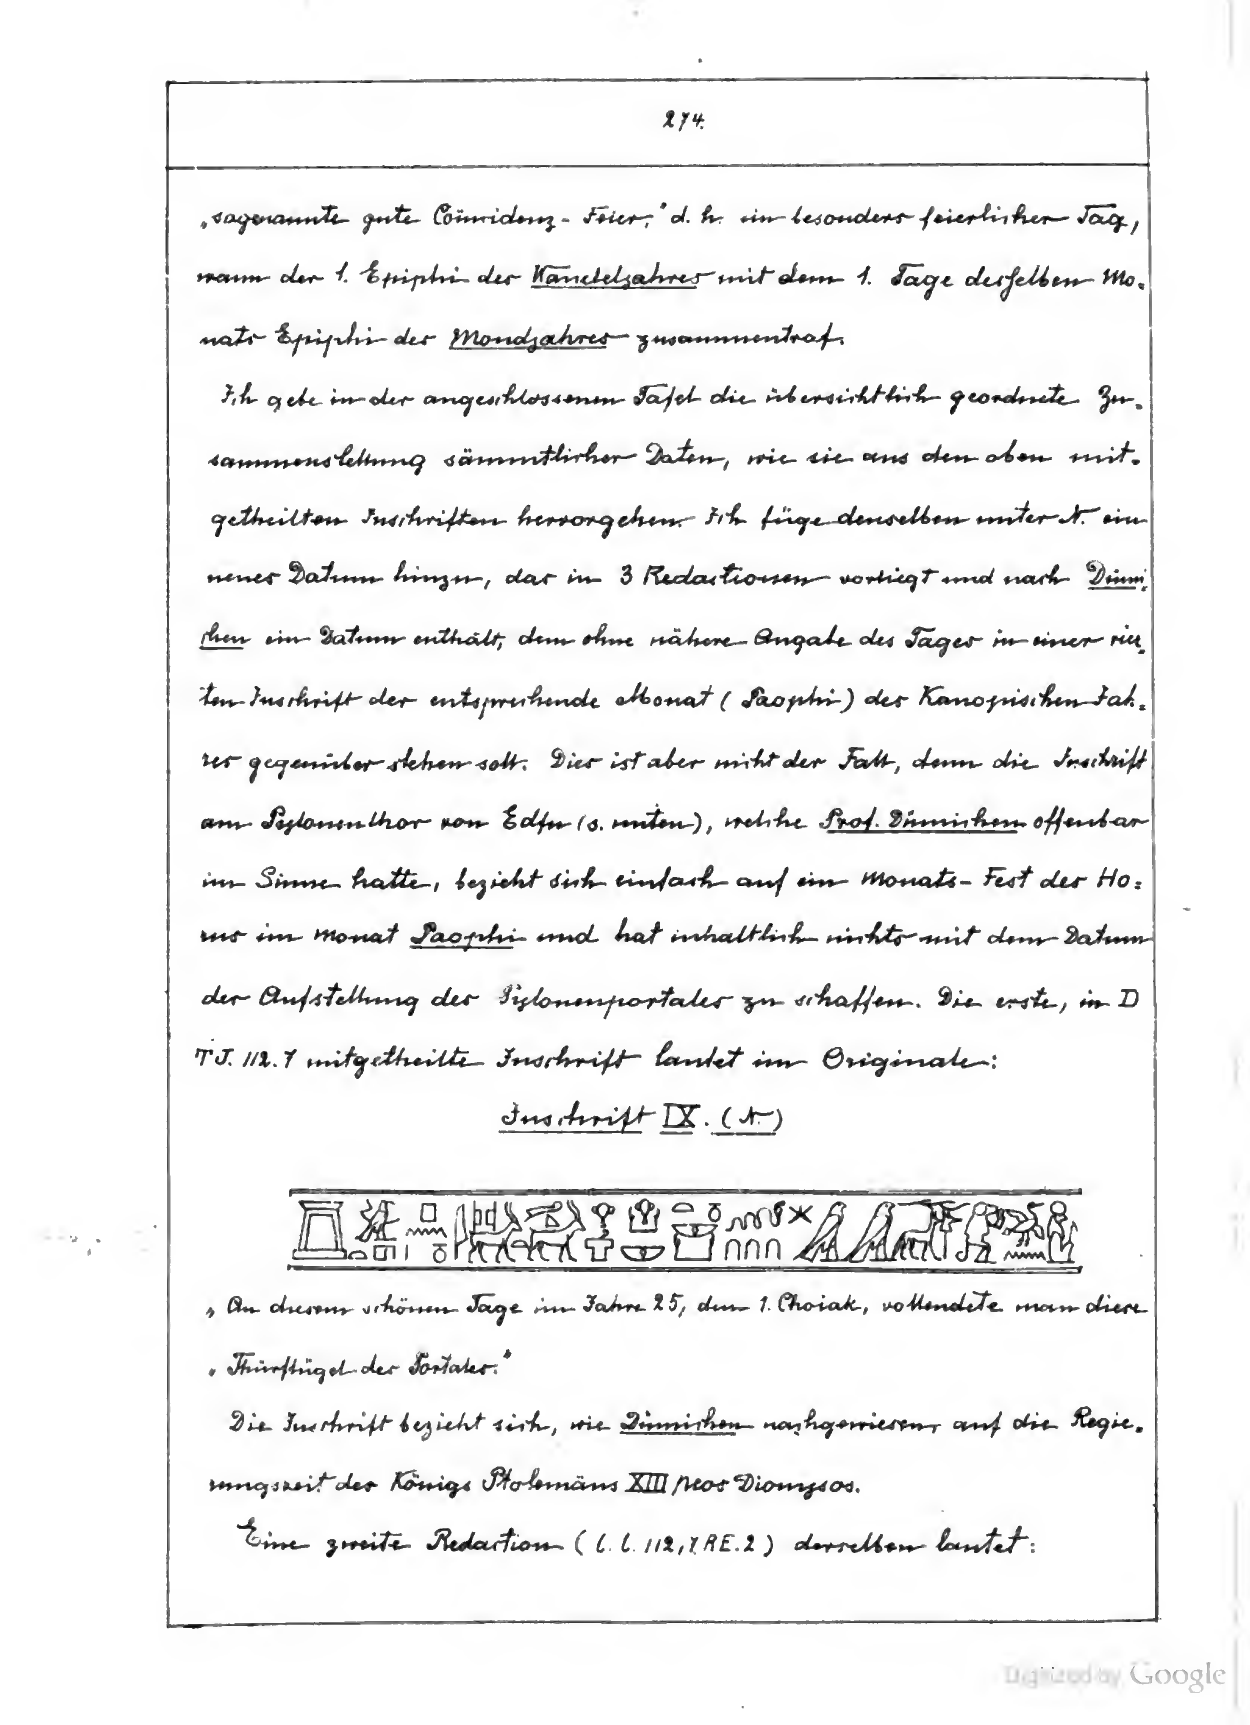 274.
„sogenannte gute Coïncidenz-Feier,“ d. h. ein besonders feierlicher Tag,
wann der 1. Epiphi des Wandeljahres mit dem 1. Tage desselben Mo-
nats Epiphi des Mondjahres zusammentraf.
Ich gebe in der angeschlossenen Tafel die übersichtlich geordnete Zu-
sammenstellung sämmtlicher Daten, wie sie aus den oben mit-
getheilten Inschriften hervorgehen. Ich füge denselben unter N. ein
neues Datum hinzu, das in 3 Redactionen vorliegt und nach Dümi-
chen ein Datum enthält, dem ohne nähere Angabe des Tages in einer
ten Inschrift der entsprechende Monat (Paophi) des Kanopischen Jah-
res gegenüber stehen soll. Dies ist aber nicht der Fall, denn die Inschrift
am Pylonenthor von Edfu (s. unten), welche Prof. Dümichen offenbar
im Sinne hatte, bezieht sich einfach auf ein Monats-Fest des Ho-
rus im Monat Paophi und hat inhaltlich nichts mit dem Datum
der Aufstellung des Pylonenportales zu schaffen. Die erste, in D
TJ. 112.7 mitgetheilte Inschrift lautet im Originale:
Inschrift IX. (N.)
„An diesem schönen Tage im Jahre 25, dem 1. Choiak, vollendete man diese
„Thürflügel des Portales.“
Die Inschrift bezieht sich, wie Dümichen nachgewiesen, auf die Regie-
rungszeit des Königs Ptolemäus XIII Neos Dionysos.
Eine zweite Redaction (l. l. 112, 7 RE. 2) derselben lautet:
Digitized by Google